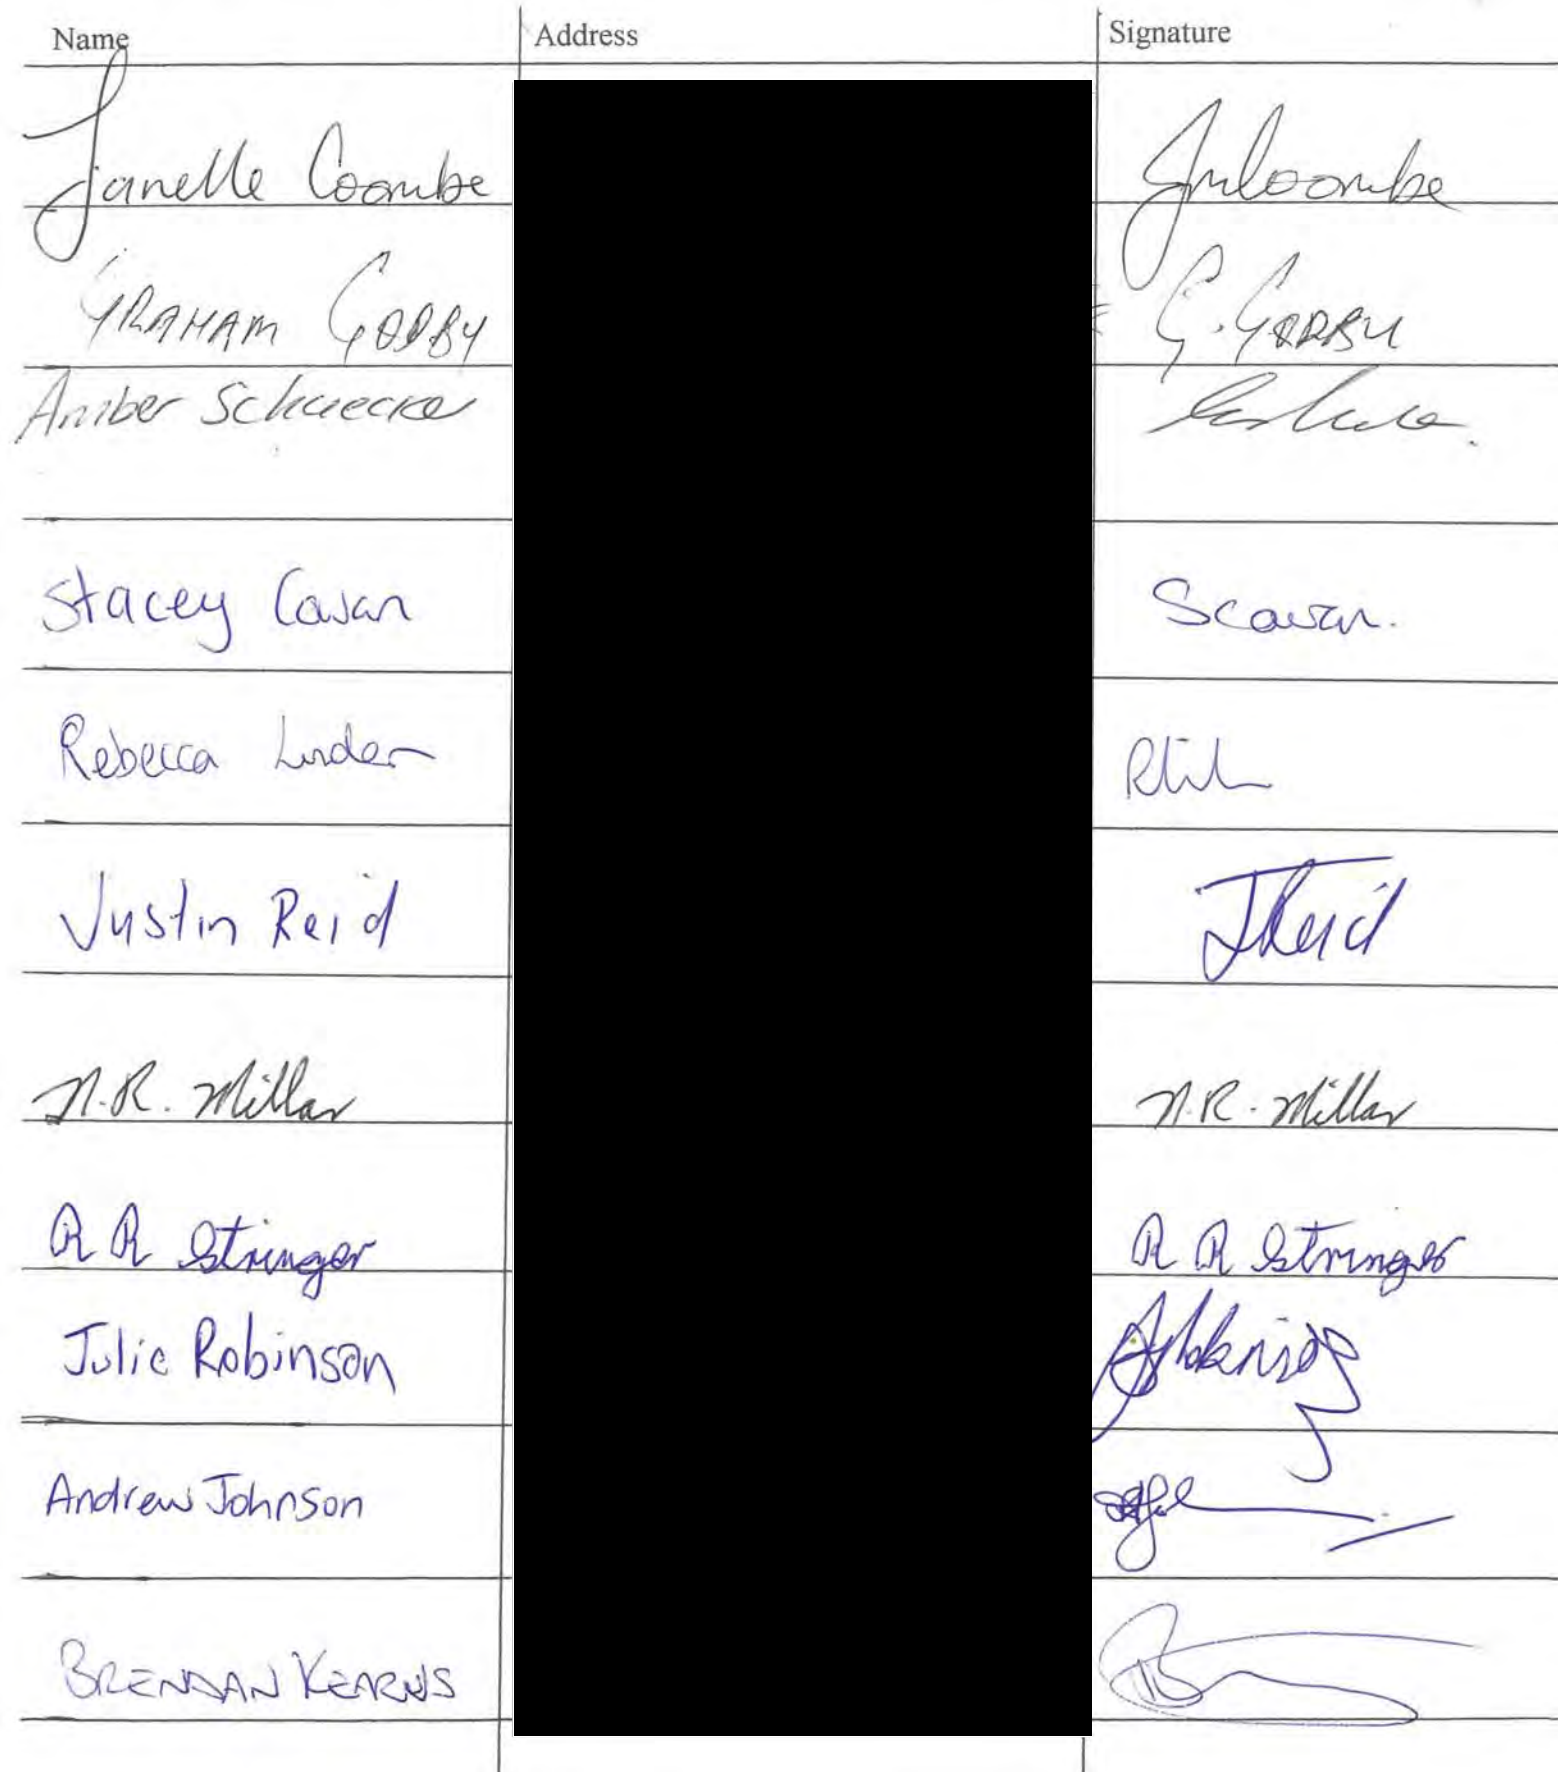 Name Address Signature
Janelle Coombe JmCoombe
GRAHAM GODBY G. GODBY
Amber
Stacey Cowan SCowan.
Rebecca Linder
Justin Reid JReid
N.R. Millar N.R. Millar
R R Stringer R R Stringer
Julie Robinson
Andrew Johnson
BRENDAN KEARNS